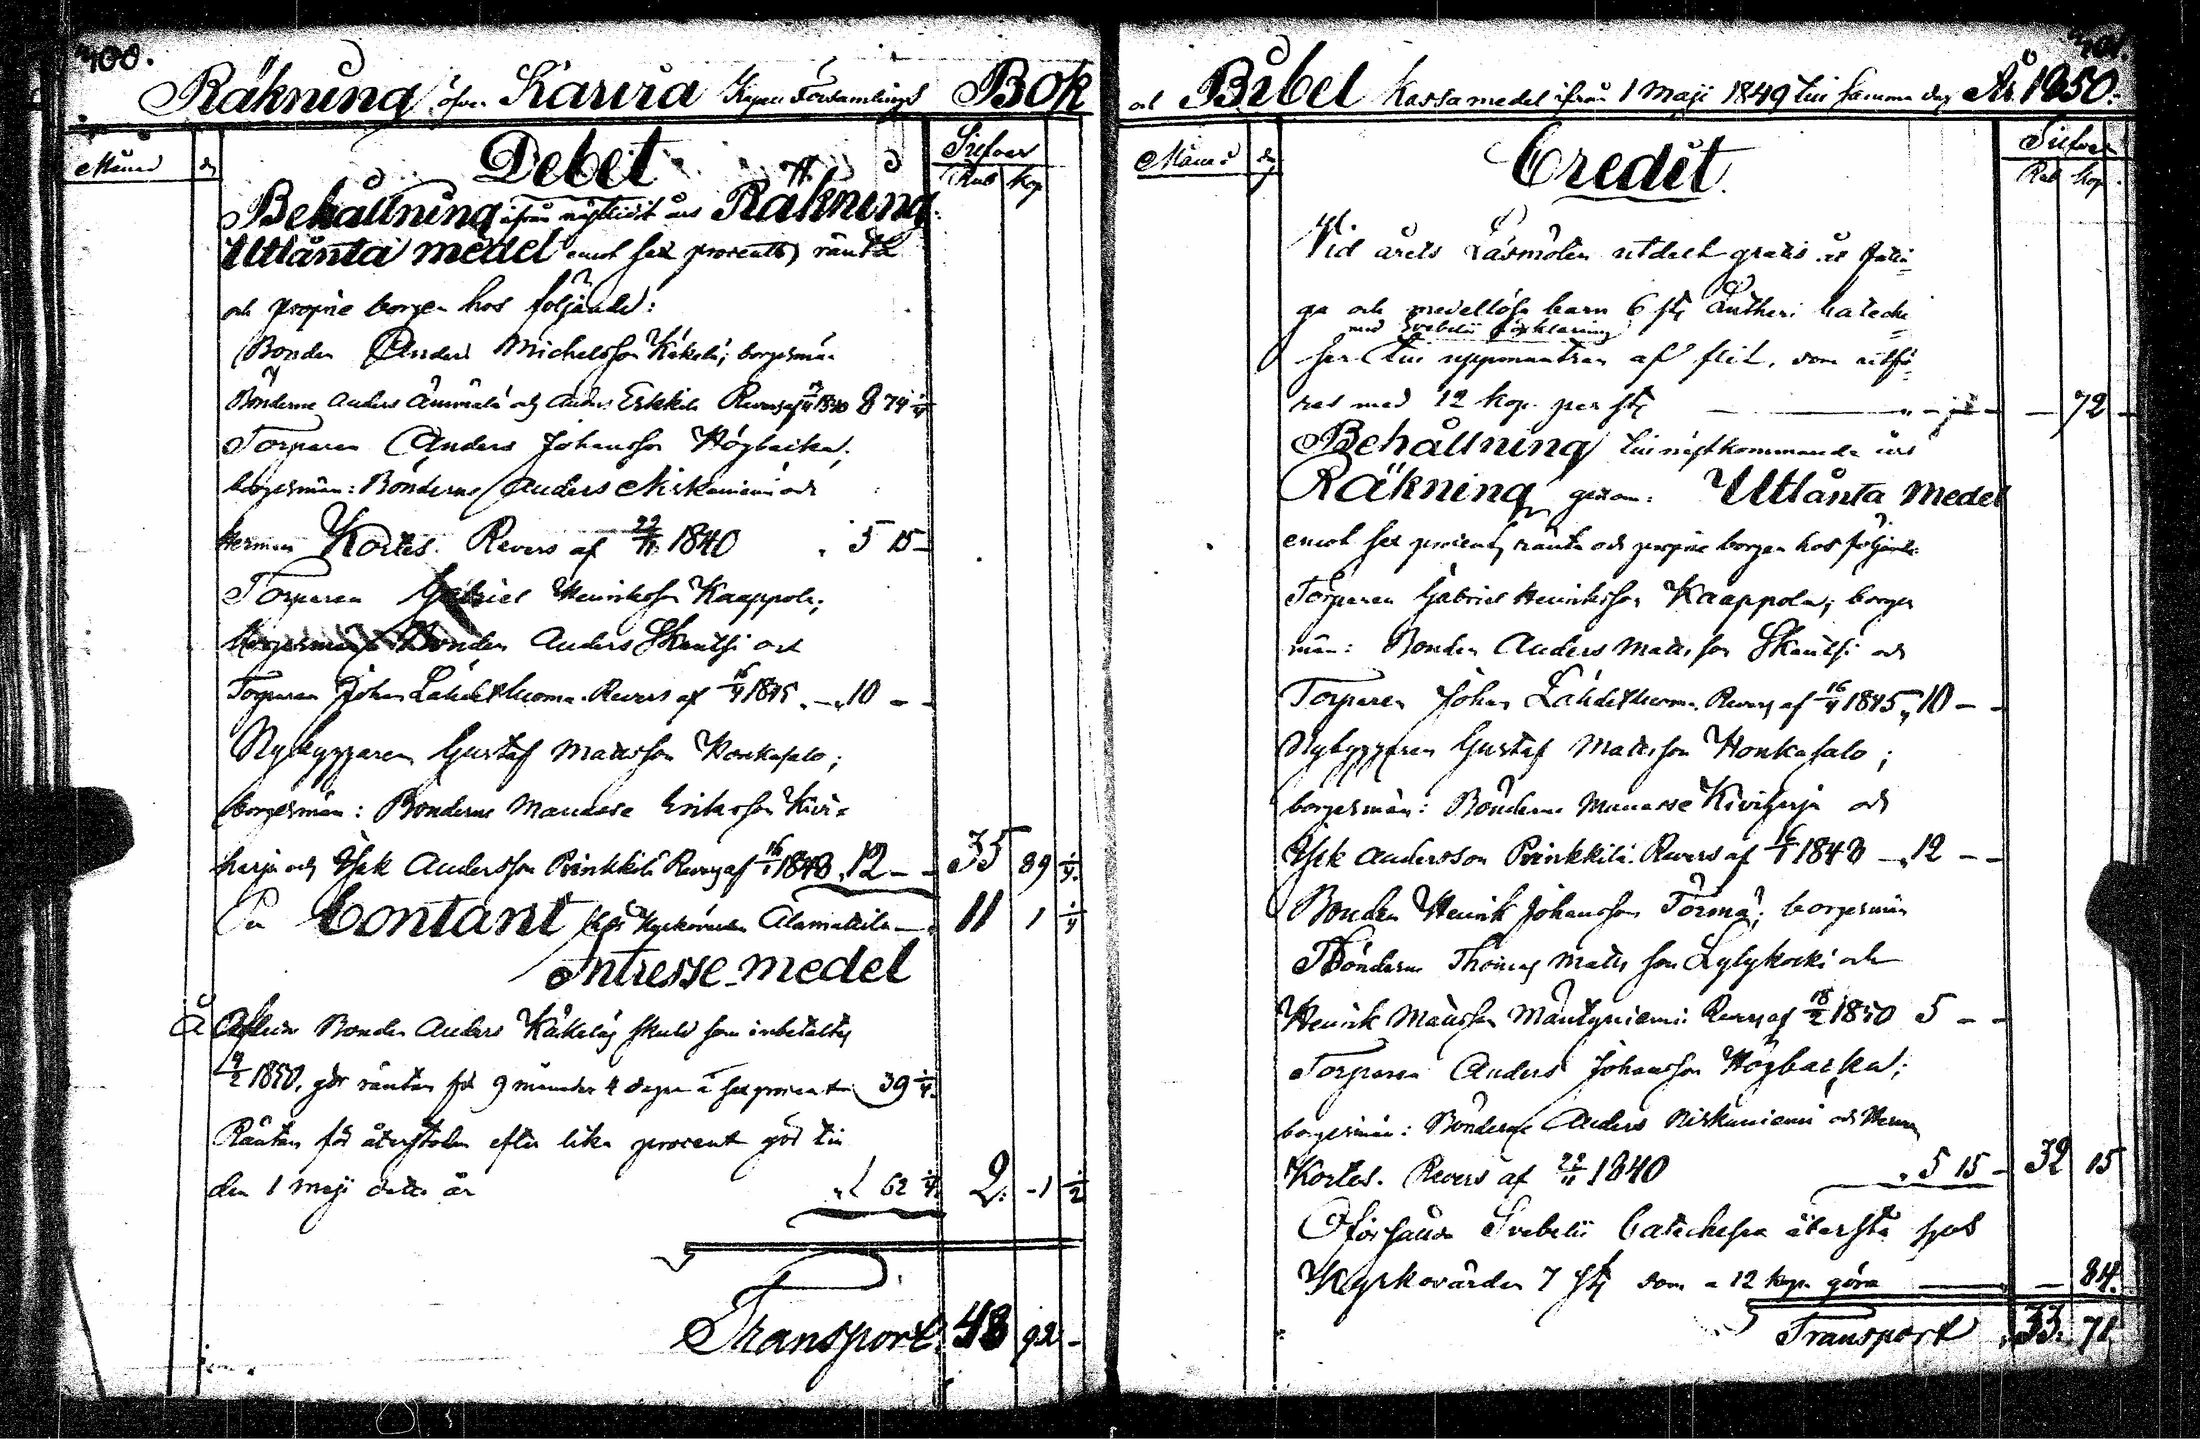 400.
Räkning öfver Kaura Kyrko Församlings Bok
Månad d Debet Silfver
Rub kop
Behållning ifrån nästledit års Räkning.
Utlånta medel emot sex procents ränta
och proprie borgen hos följande:
Bonden Anders Michelsson Käkelä; borgesmän
Bönderne Anders Ämmälä och Anders Erkkilä Revers af 1840 8 74 1/4
Torparen Anders Johansson Högbacka;
borgesmän: Bönderne Anders Niskaniemi och
Herman Kortes. Revers af 22/11 1840 " 5 15 -
Torparen Gabriel Henriksson Kaappola;
borgesmän Bonden Anders Skantsi och
Torparen Johan Lähdetluoma. Revers af 16/4 1845 " 10 - -
Nybyggaren Gustaf Mattsson Honkasalo;
borgesmän: Bönderne Manasse Eriksson Kivi-
harju och Isak Andersson Prinkkilä Revers af 16/1 1848 " 12 - - 35 89 1/4
Contant hos Kyrkovärden Alamattila - 11 1 1/4
Intresse-medel
Å Bonden Anders Käkeläs skuld som inbetaltes
9/2 1850. gör räntan för 9 månader 4 dagar à sex procenten 39 1/4
Räntan för återstoden efter lika procent gör till
den 1 Maji detta år " 1 62 1/4 2. - 1 1/2
Transport. 48 92 -
401.
och Bibel Kassa medel ifrån 1 Maji 1849 till samma dag År 1850.
Månad d Credit. Silfver
Rub kop.
Vid årets Läsmöten utdelt gratis åt fatti-
ga och medellösa barn 6 st Lutheri Cateche-
med Svebelii förklaring
ser till uppmuntran af flit, som utfö-
res med 12 kop. per st - - 72 -
Behållning till nästkommande års
Räkning genom: Utlånta Medel
emot sex procents ränta och proprie borgen hos följande
Torparen Gabriel Henriksson Kaappola; borges
män: Bonden Anders Mattsson Skantsi och
Torparen Johan Lähdetluoma. Revers af 16/4 1845 " 10 - -
Nybyggaren Gustaf Mattsson Honkasalo;
borgesmän: Bönderne Manasse Kiviharju och
Isak Andersson Prinkkilä. Revers af 16/1 1848 - " 12 - -
Bonden Henrik Johansson Törmä; borgesmän
Bönderne Thomas Mattsson Lylykoski och
Henrik Mattsson Mäntyniemi. Revers af 18/2 1850 5 - -
Torparen Anders Johansson Högbacka;
borgesmän: Bönderne Anders Niskaniemi och Herman
Kortes. Revers af 22/11 1840 " 5 15 - 32 15
Oförsålda Svebelii Catecheser återstå hos
Kyrkovärden 7 st som a 12 kop. göra - 84.
Transport 33. 71